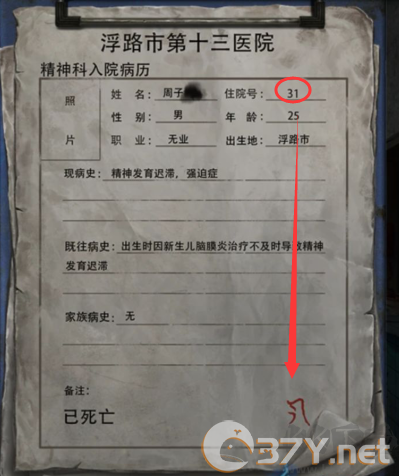 浮路市第十三医院
精神科入院病历
照片
姓 名: 周子 住院号: 31
性 别: 男 年 龄: 25
职 业: 无业 出生地: 浮路市
现病史: 精神发育迟滞,强迫症
既往病史: 出生时因新生儿脑膜炎治疗不及时导致精神
发育迟滞
家族病史: 无
备注:
已死亡
37Y.net